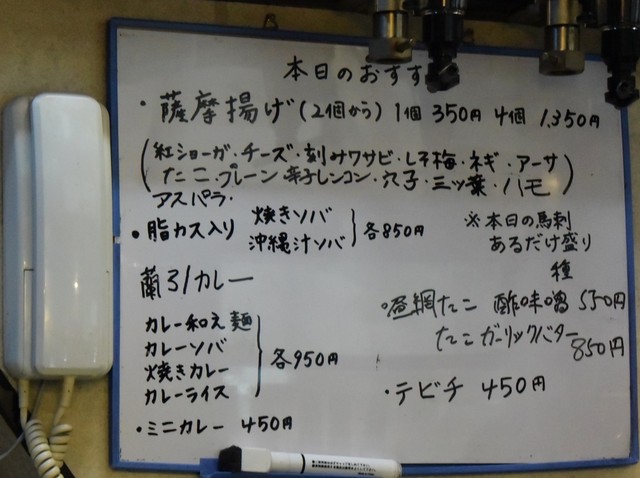 本日のおすす
・薩摩揚げ(2個から) 1個 350円 4個 1,350円
(紅ショーガ・チーズ・刻みワサビ・しそ梅・ネギ・アーサ
たこ・プレーン 辛子レンコン・穴子・三ッ葉・ハモ)
アスパラ・
・脂カス入り 焼きソバ 沖縄汁ソバ 各850円
※本日の馬刺
あるだけ盛り
種
蘭31カレー
カレー和え麺
カレーソバ
焼きカレー
カレーライス
各950円
・ミニカレー 450円
・昼網たこ 酢味噌 550円
たこガーリックバター
850円
・テビチ 450円